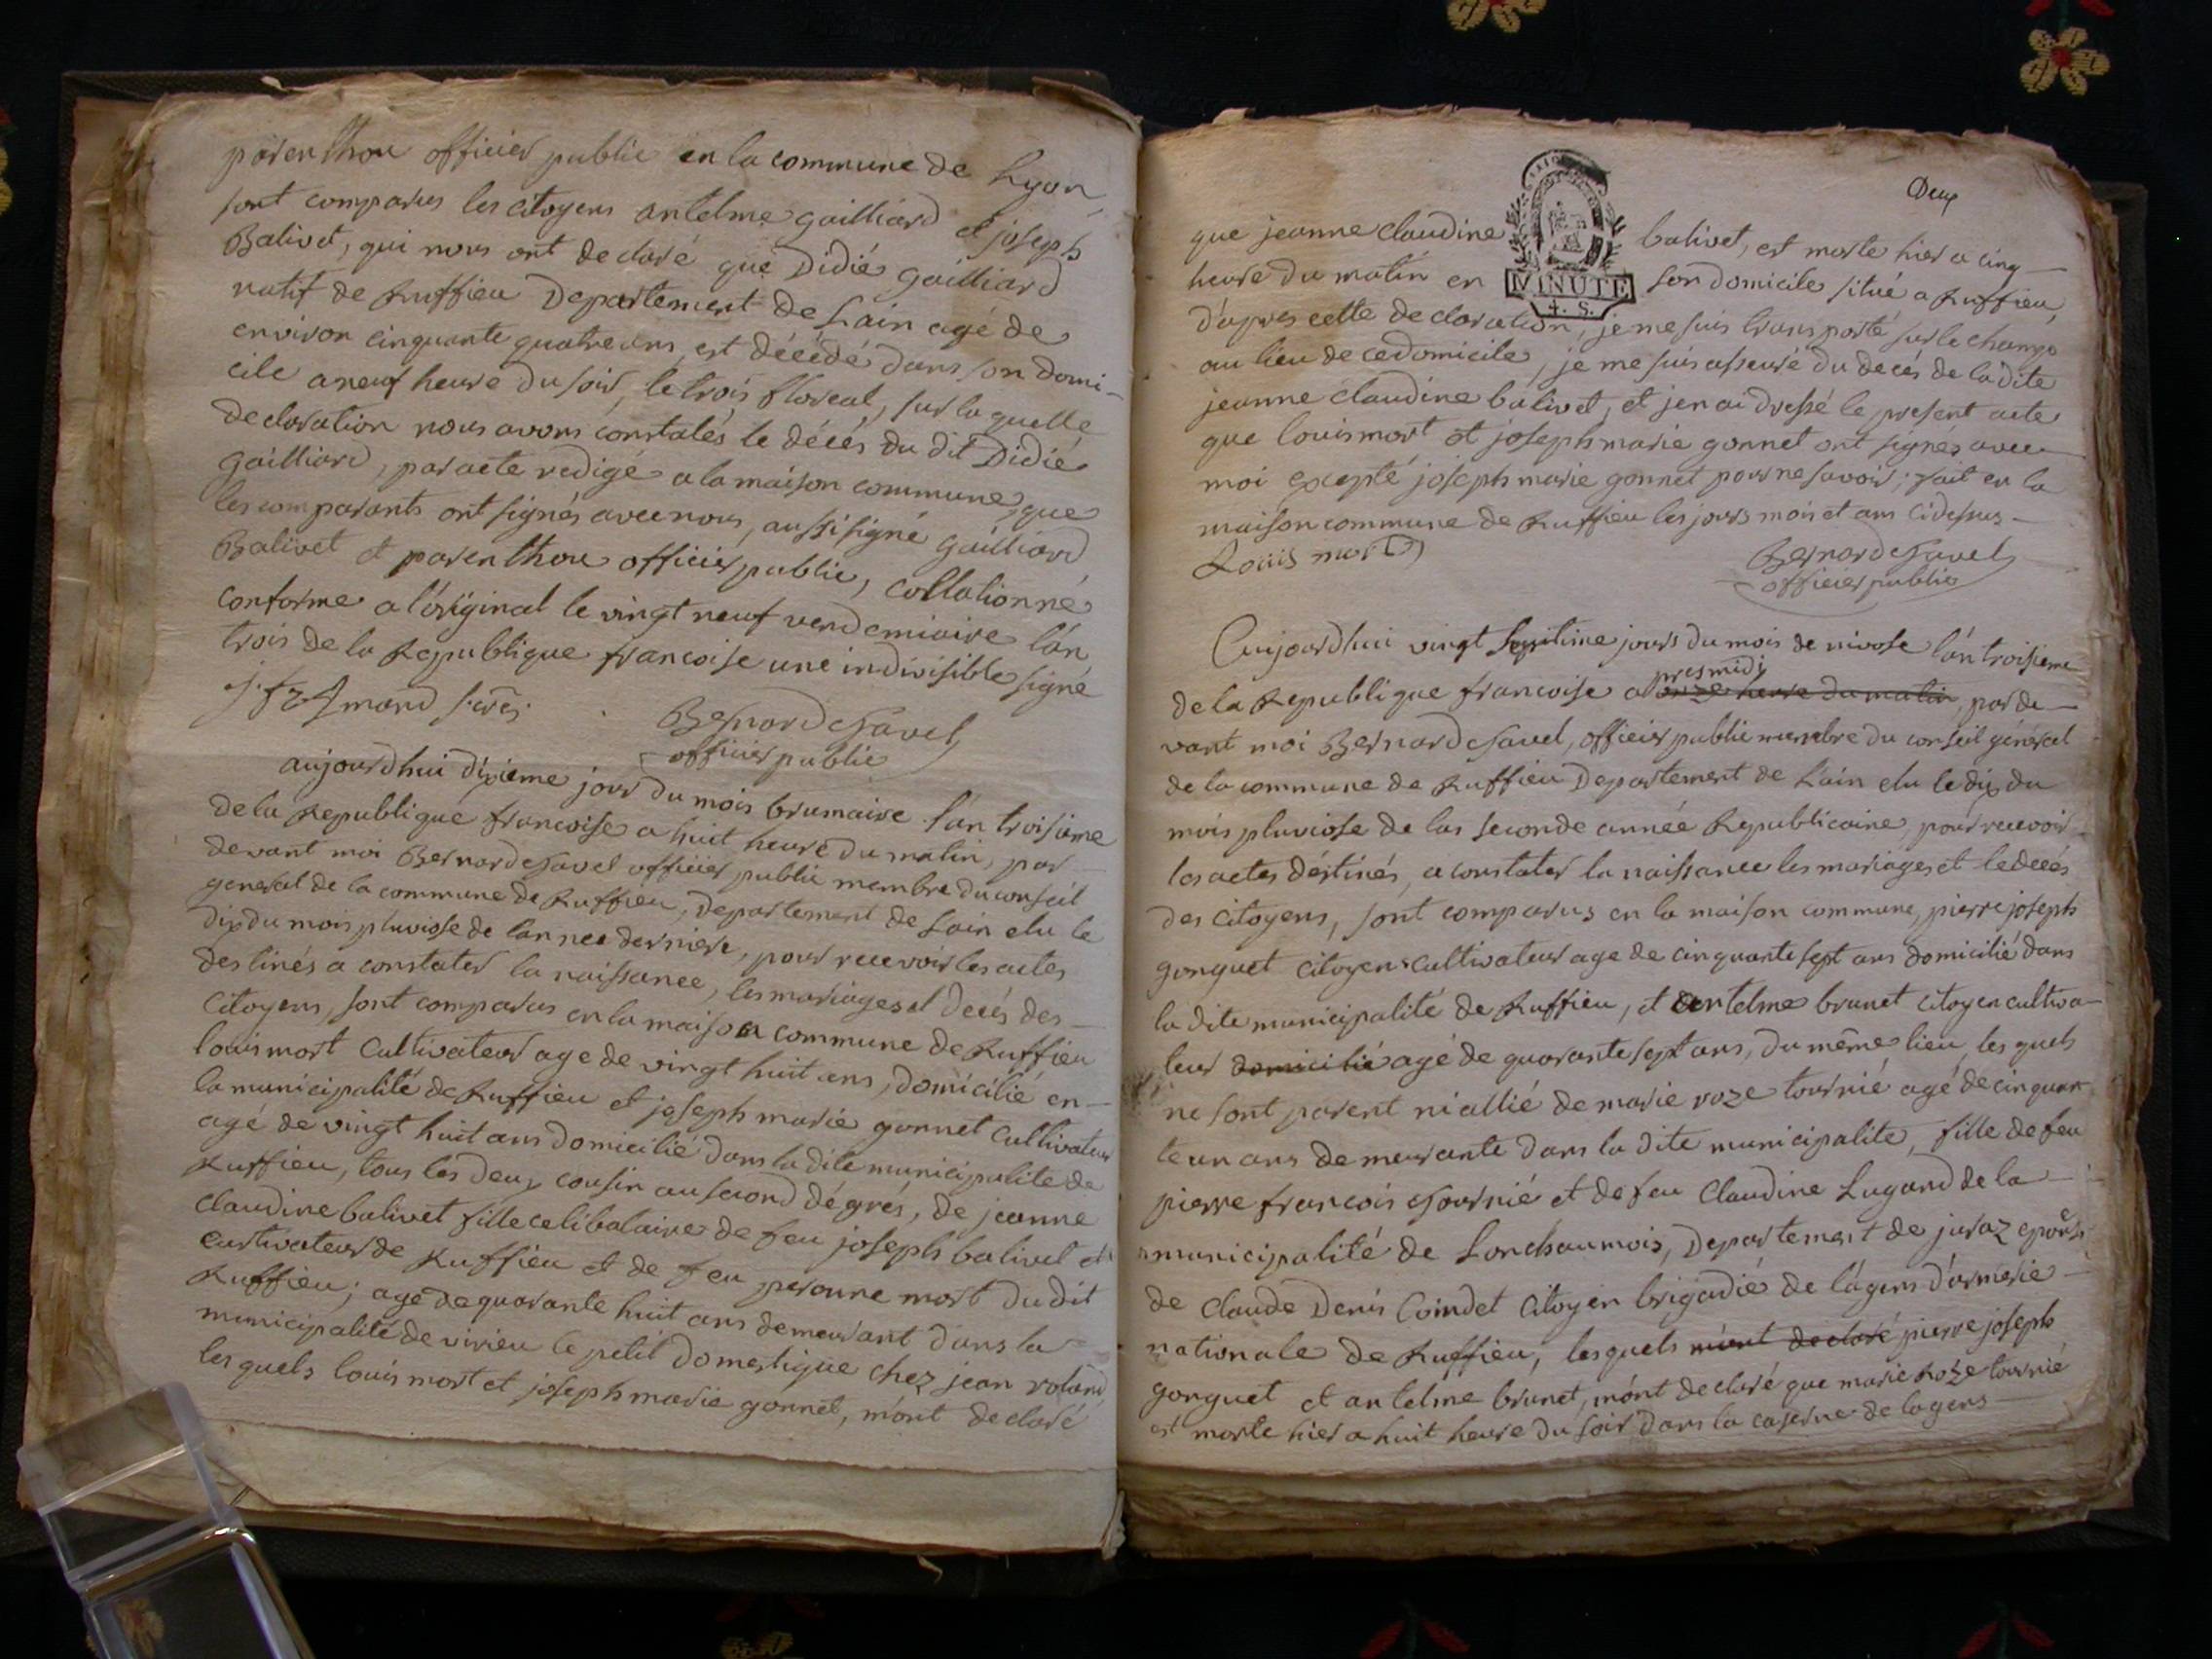 parenthou officier public en la commune de Lyon,
sont comparus les citoyens antelme gailliard et joseph
Balivet, qui nous ont declaré que Didié gailliard
natif de Ruffieu Departement de Lain agé de
environ cinquante quatre ans, est décédé dans son domi-
cile a neuf heure du soir, le trois floreal, sur laquelle
declaration nous avons constatés le décés du dit Didié
Gailliard, par acte redigé a la maison commune, que
les comparants ont signés avec nous, aussi signé gailliard
Balivet et parenthou officier public, collationné
conforme a l'original le vingt neuf vendemiaire l'an
trois de la Republique francoise une indivisible signé
mond
Bernard Savel
officier public
aujourdhui dixieme jour du mois brumaire l'an troisieme
de la Republique francoise a huit heure du matin, par
devant moi Bernard Savel officier public membre du conseil
general de la commune de Ruffieu, Departement de Lain elu le
dix du mois pluviose de lannee derniere, pour recevoir les actes
destinés a constater la naissance, les mariages et decés des
Citoyens, sont comparus en la maison commune de Ruffieu
louis mort Cultivateur age de vingt huit ans, domicilié en
la municipalité de Ruffieu et joseph marie gonnet Cultivateur
agé de vingt huit ans domicilié dans la dite municipalite de
Ruffieu, tous les deux cousin au second dégrés, de jeanne
Claudine balivet fille celibataire de feu joseph balivet
Cultivateur de Ruffieu et de feu peronne mort dudit
Ruffieu; age de quarante huit ans demeurant dans la
municipalité de virieu le petit domestique chez jean roland
les quels louis mort et joseph marie gonnet, m'ont declaré
Deux
que jeanne Claudine balivet, est morte hier a cinq
MINUTE
4. S.
heure du matin en son domicile situé a Ruffieu,
d'apres cette declaration, je me suis transporté sur le champ
au lieu de ce domicile, je me suis asseuré du decés de la dite
jeanne Claudine balivet, et j'en ai dressé le present acte
que louis mort et joseph marie gonnet ont signés avec
moi excepté joseph marie gonnet pour ne savoir; fait en la
maison commune de Ruffieu les jours mois et ans cidessus
Louis mort
Bernard Savel
officier public
Aujourdhui vingt septime jours du mois de nivose l'an troisieme
presmidi
de la Republique francoise a onze heure du matin, par de
vant moi Bernard Savel, officier public membre du conseil général
de la commune de Ruffieu Departement de L'ain elu le dix du
mois pluviose de las seconde année Republicaine, pour recevoir
les actes déstinés, a constater la naissance les mariages et le decés
des Citoyens, sont comparus en la maison commune, pierre joseph
gonguet citoyen cultivateur age de cinquante sept ans domicilié dans
la dite municipalité de Ruffieu, et antelme brunet citoyen cultiva-
teur domicilié agé de quarante sept ans, du même lieu, les quels
ne sont parent ni allié de marie roze tournié agé de cinquan
te un ans demeurante dans la dite municipalite, fille de feu
pierre francois tournié et de feu Claudine Lugand de la
municipalité de Lonchaumois, Departement de juraz epouse
de Claude Denis Coindet Citoyen brigadié de lágens d'armerie
nationale de Ruffieu, lesquels m'ont declaré pierre joseph
gonguet et antelme brunet, m'ont declaré que marie Roze tournié
est morte hier a huit heure du soir dans la caserne de lagens